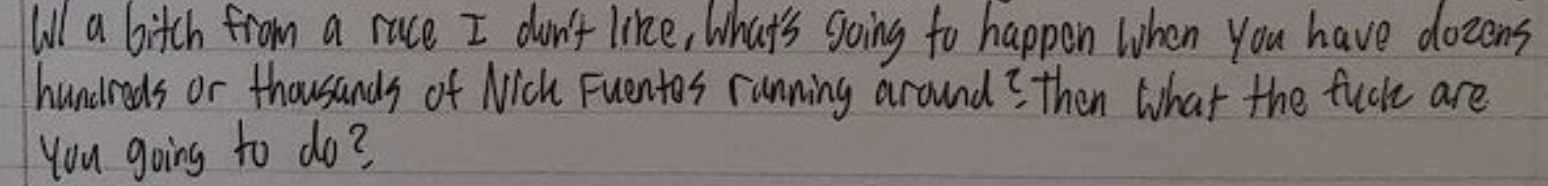 W/ a bitch from a race I don't like, What's going to happen When You have dozens
hundreds or thousands of Nick Fuentes running around? Then What the fuck are
You going to do?